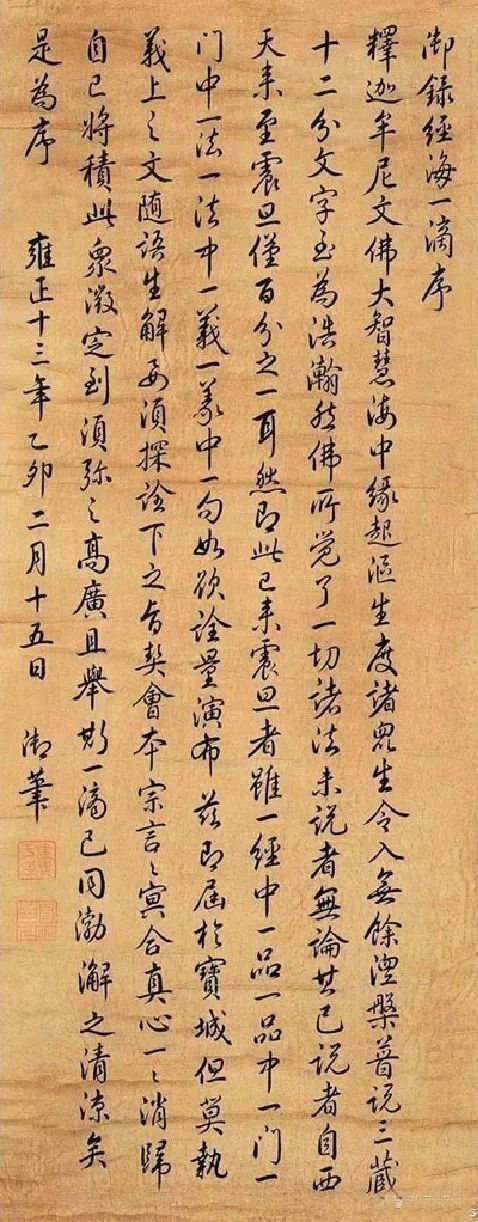 御錄經海一滴序
釋迦牟尼文佛大智慧海中緣起漚生度諸眾生令入無餘湼槃普說三藏
十二分文字至為浩瀚然佛所覺了一切諸法未說者無論其已說者自西
天來至震旦僅百分之一耳然即此已来震旦者雖一經中一品一品中一门一
门中一法一法中一義一義中一句如欲詮量演布茲即屆於寶城但莫執
義上之文随語生解要須探詮下之旨契會本宗言〻冥合真心一〻消歸
自己將積此眾微定到須弥之高廣且舉斯一滴已同渤澥之清涼矣
是為序 雍正十三年乙卯二月十五日 御筆